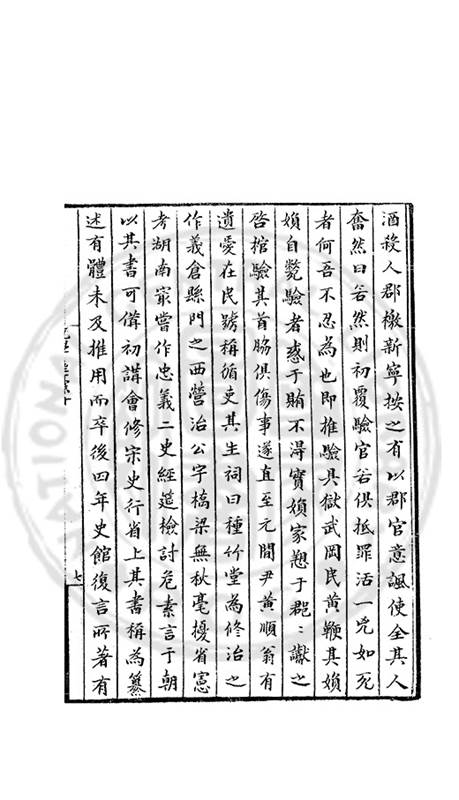 酒殺人郡檄新寧按之有以郡官意諷使全其人
奮然曰若然則初覆驗官若俱抵罪活一兇如死
者何吾不忍為也即推驗具獄武岡民黃鞭其嬾
嬾自斃驗者惑于賄不得實嬾家愬于郡：讞之
啓棺驗其首脇俱傷事遂直至元間尹黃順翁有
遺愛在民號稱循吏其生祠曰種竹堂為修治之
作義倉縣門之西營治公宇橋梁無秋毫擾省憲
考湖南寂嘗作忠義二史經筵檢討危素言于朝
以其書可俻初講會修宋史行省上其書稱為纂
述有體未及推用而卒後四年史館復言所著有
七